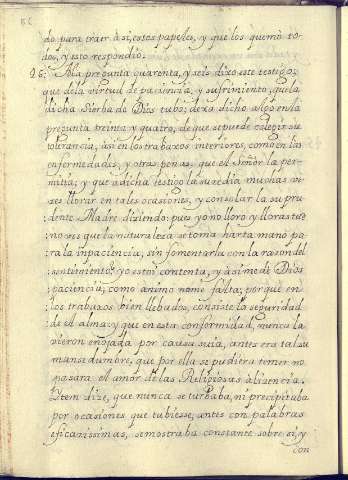 do para traer à si, estos papeles, y que los quemò to-
dos, y esto respondiò.
A la pregunta quarenta, y seis dixo este testigo;
que de la virtud de paciencia, y sufrimiento, que la
dicha Sierba de Dios tubo; dexa dicho algo en la
pregunta treinta, y quatro, de que se puede colegir su
tolerancia, asi en los trabaxos interiores, como en las
enfermedades, y otras penas, que el Señor la per-
mitia; y que a dicha testigo la susedia muchas ve-
ses llorar en tales ocasiones, y consolar la su pru-
dente Madre diziendo: pues yo no lloro y lloras tu?
no ves que la naturaleza se toma harta mano pa-
ra la inpaciencia, sin fomentarla con la rason del
sentimiento? yo estoi contenta, y asi me de Dios
paciencia, como animo no me falta; porque en
los trabaxos bien llebados, consiste la seguridad
de el alma: y que en esta conformidad, nunca la
vieron enojada por causa suia, antes era tal su
mansedumbre, que por ella se pudiera temer no
pasara el amor de las Religiosas à lisencia.
Item dize, que nunca se turbaba, ni precipitaba
por ocasiones que tubiesse, antes con palabras
eficacissimas, se mostraba constante sobre si, y
con